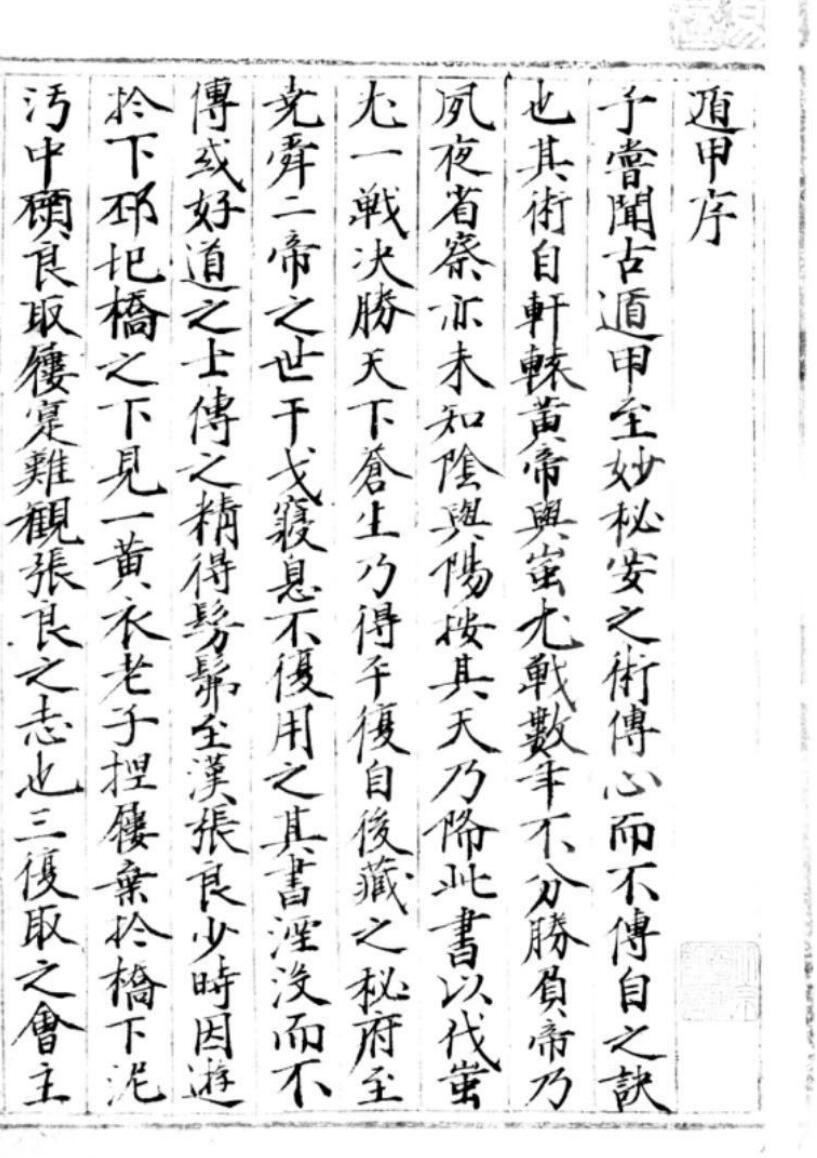 遁甲序
予嘗聞古遁甲至妙秘安之術傳心而不傳自之訣
也其術自軒轅黃帝與蚩尤戰數年不分勝負帝乃
夙夜省察亦未知陰與陽按其天乃降此書以伐蚩
尤一戰决勝天下蒼生乃得平復自後藏之秘府至
尭舜二帝之世干戈寢息不復用之其書湮沒而不
傳或好道之士傳之精得髣髴至漢張良少時因遊
於下邳圯橋之下見一黃衣老子捏𩍕棄於橋下泥
汚中顧良取𩍕寔難観張良之志也三復取之會主